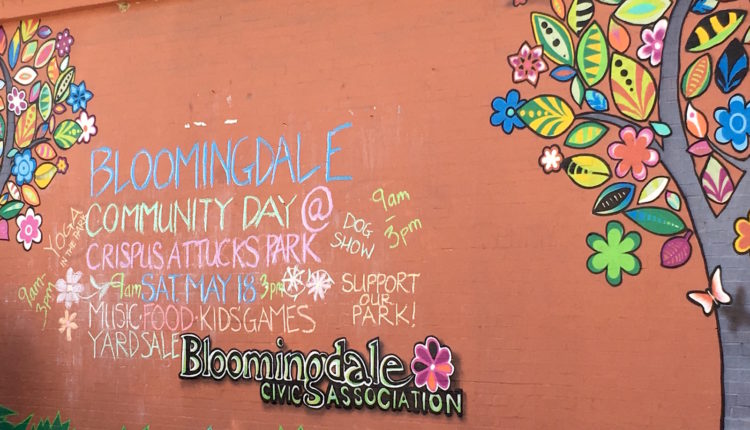 BLOOMINGDALE
COMMUNITY DAY @
CRISPUS ATTUCKS PARK
9am SAT. MAY 18 3pm
MUSIC·FOOD·KIDS GAMES
YARD SALE
YOGA
IN THE PARK
9am-
3pm
DOG
SHOW
9am
-
3pm
SUPPORT
OUR
PARK!
Bloomingdale
CIVIC ASSOCIATION